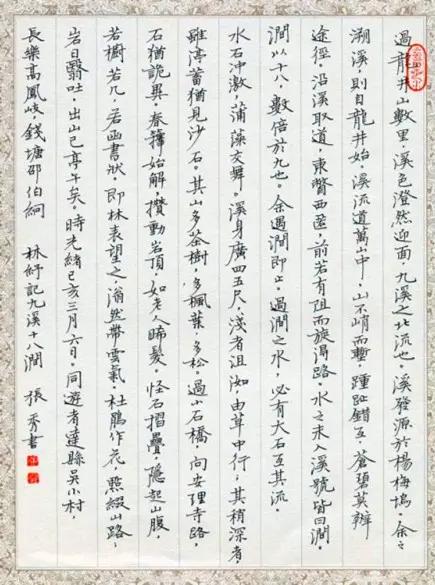 過龍井山數里，溪色澄然迎面，九溪之北流也。溪發源於楊梅塢，余之
溯溪，則自龍井始。溪流道萬山中，山不峭而塹，踵趾錯互，蒼碧莫辨
途徑。沿溪取道，東瞥西匿，前若有阻而旋得路。水之未入溪號皆曰澗，
澗以十八，數倍於九也。余遇澗即止。過澗之水，必有大石亙其流，
水石沖激，蒲藻交舞。溪身廣四五尺，淺者沮洳，由草中行，其稍深者，
雖渟蓄猶見沙石。其山多茶樹，多楓葉，多松。過小石橋，向安理寺路，
石猶詭異。春籜始解，攢動岩頂，如老人晞髮。怪石摺疊，隱起山腹，
若櫥若几，若函書狀。即林表望之，滃然帶雲氣。杜鵑作花，點綴山路，
岩日翳吐，出山已亭午矣。時光緒己亥三月六日，同遊者達縣吳小村，
長樂高鳳岐，錢塘邵伯絅 林紓記九溪十八澗 張秀書